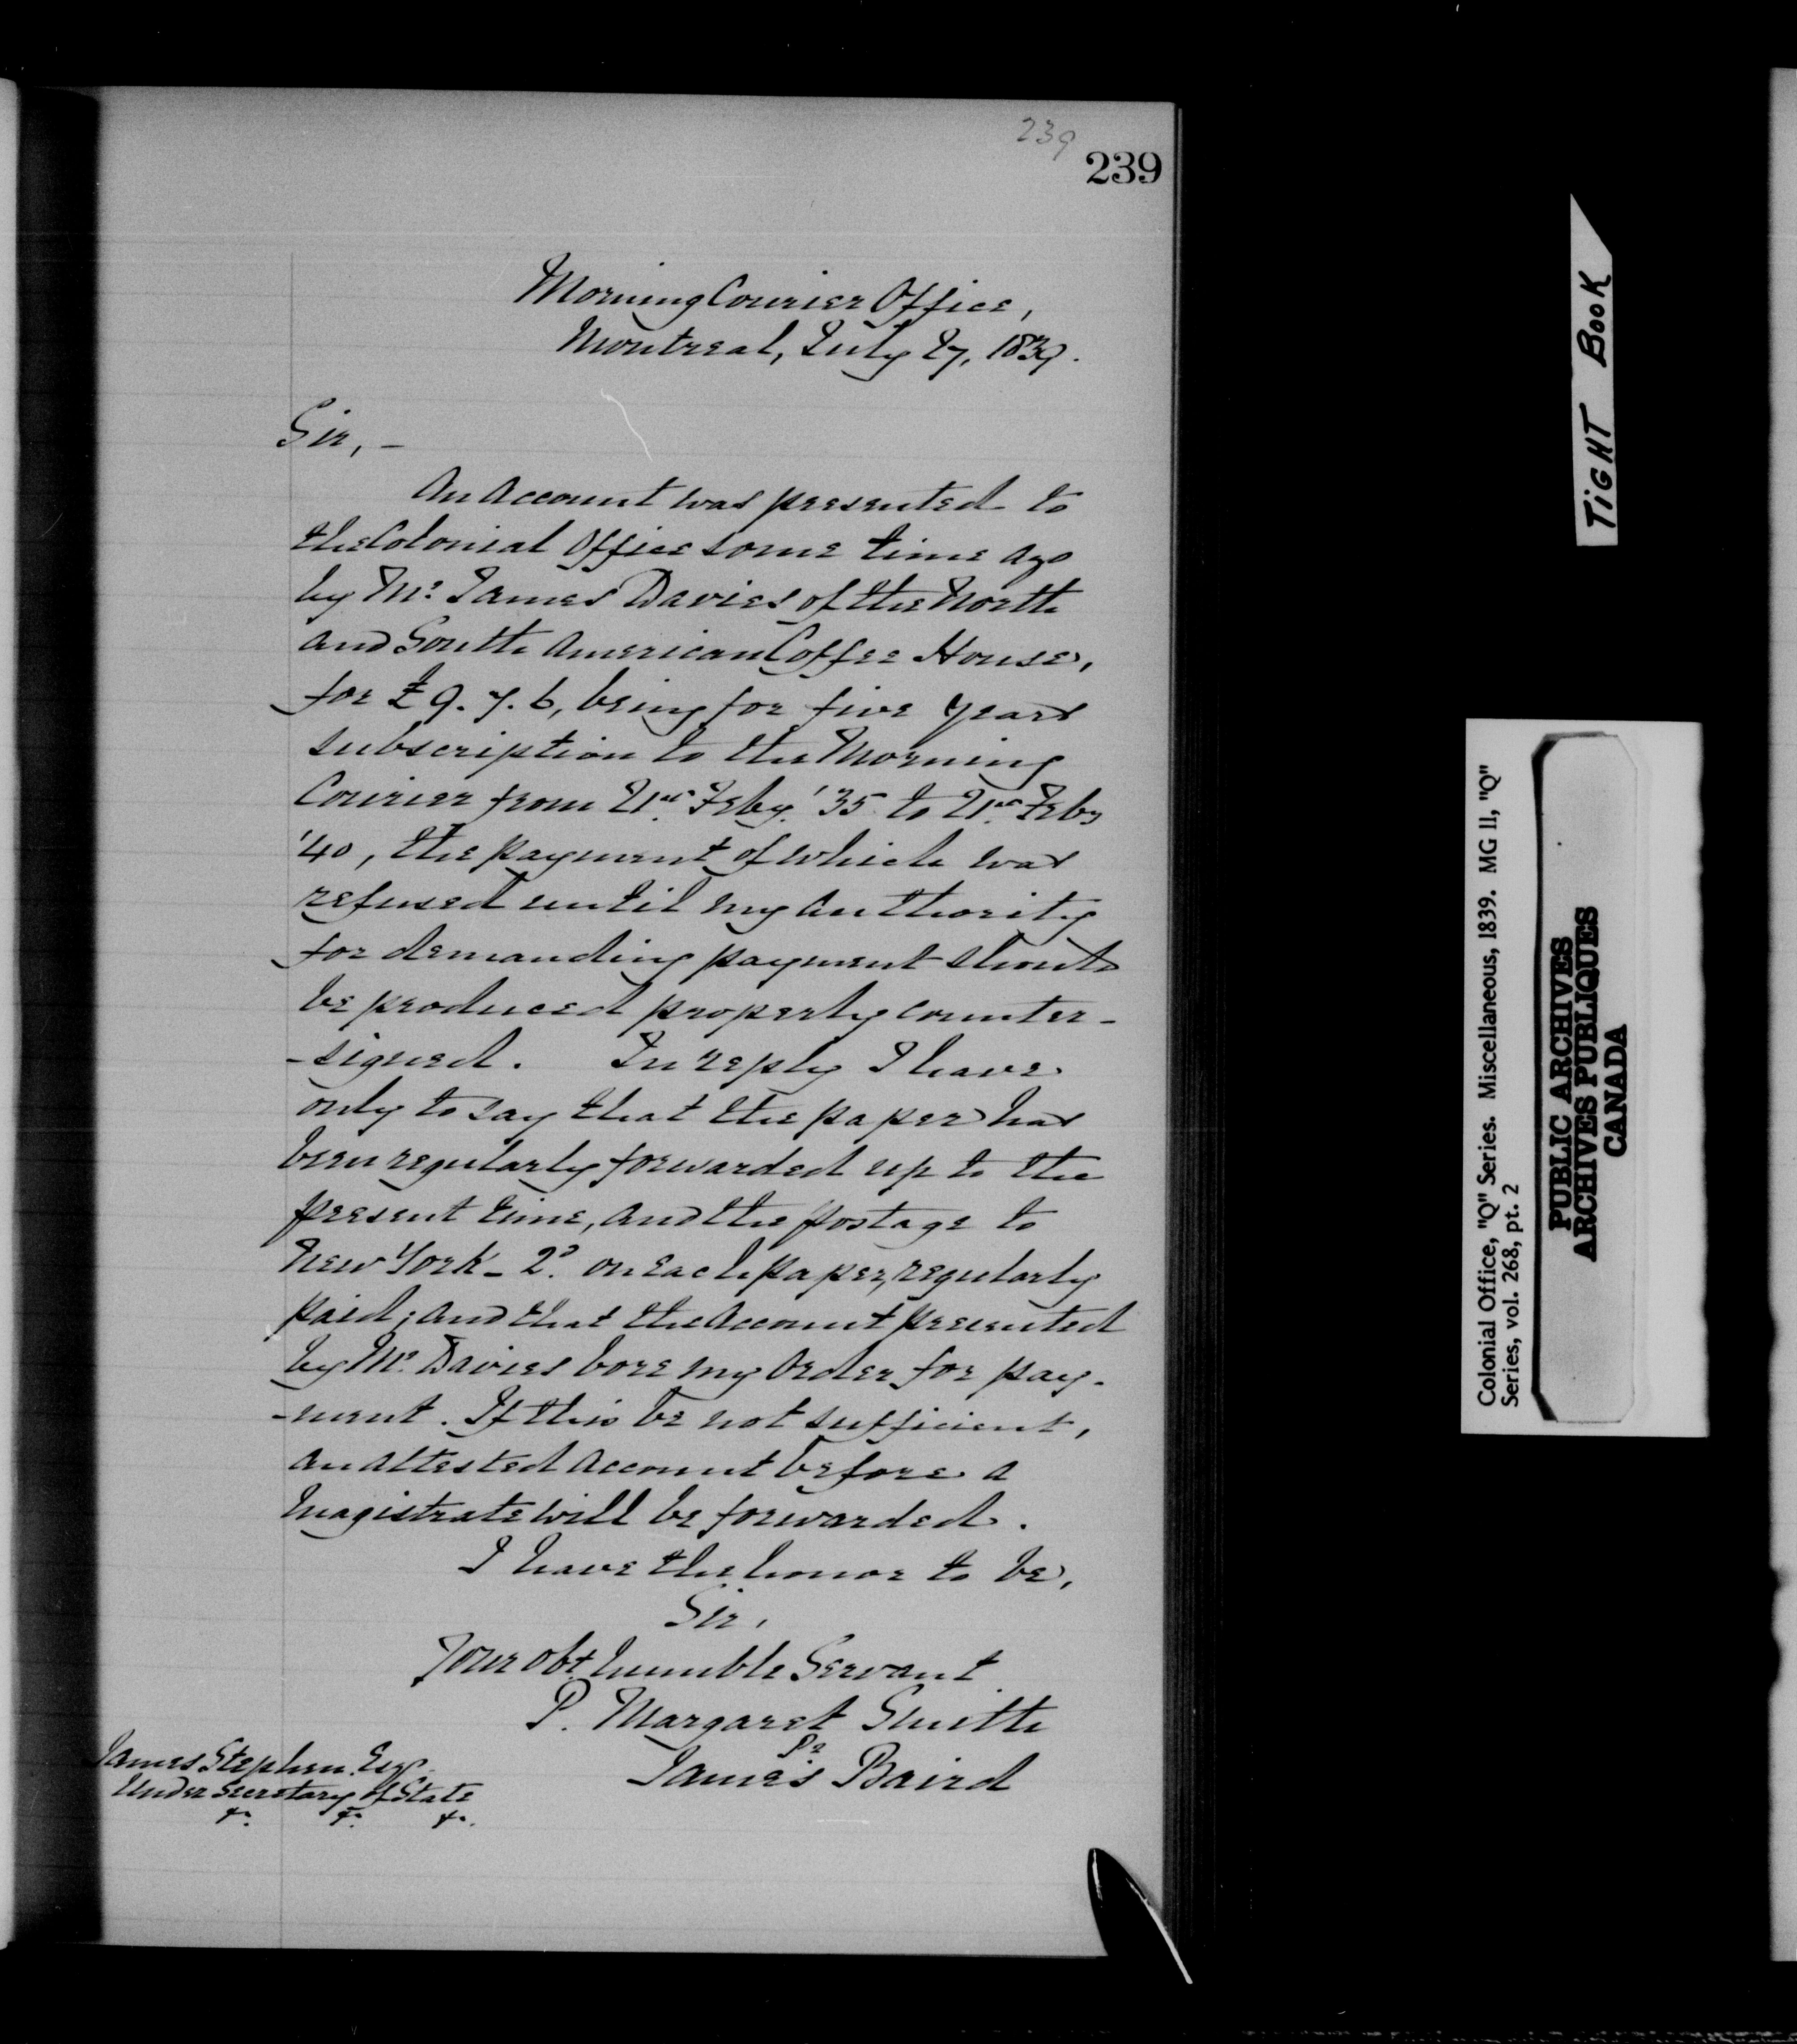 239
239
Morning Courier Office,
Montreal, July 27, 1839.
Sir, –
An Account was presented to
the Colonial Office some time ago
by Mr. James Davies of the North
and South American Coffee House,
for £9.7.6, being for five years
subscription to the Morning
Courier from 21st. Feby. '35 to 21st. Feby
'40, the payment of which was
refused until my authority
for demanding payment should
be produced properly counter-
-signed. In reply I have
only to say that the paper has
been regularly forwarded up to the
present time, and the postage to
New York – 2d. on each paper, regularly
paid; and that the Account presented
by Mr. Davies bore my order for pay-
-ment. If this be not sufficient,
an attested Account before a
Magistrate will be forwarded.
I have the honor to be,
Sir,
Your obt. humble Servant
P. Margaret Smith
Pr.
James Baird
James Stephen Esq.
Under Secretary of State
&c. &c. &c.
TIGHT BOOK
Colonial Office, "Q" Series. Miscellaneous, 1839. MG 11, "Q"
Series, vol. 268, pt. 2
PUBLIC ARCHIVES
ARCHIVES PUBLIQUES
CANADA